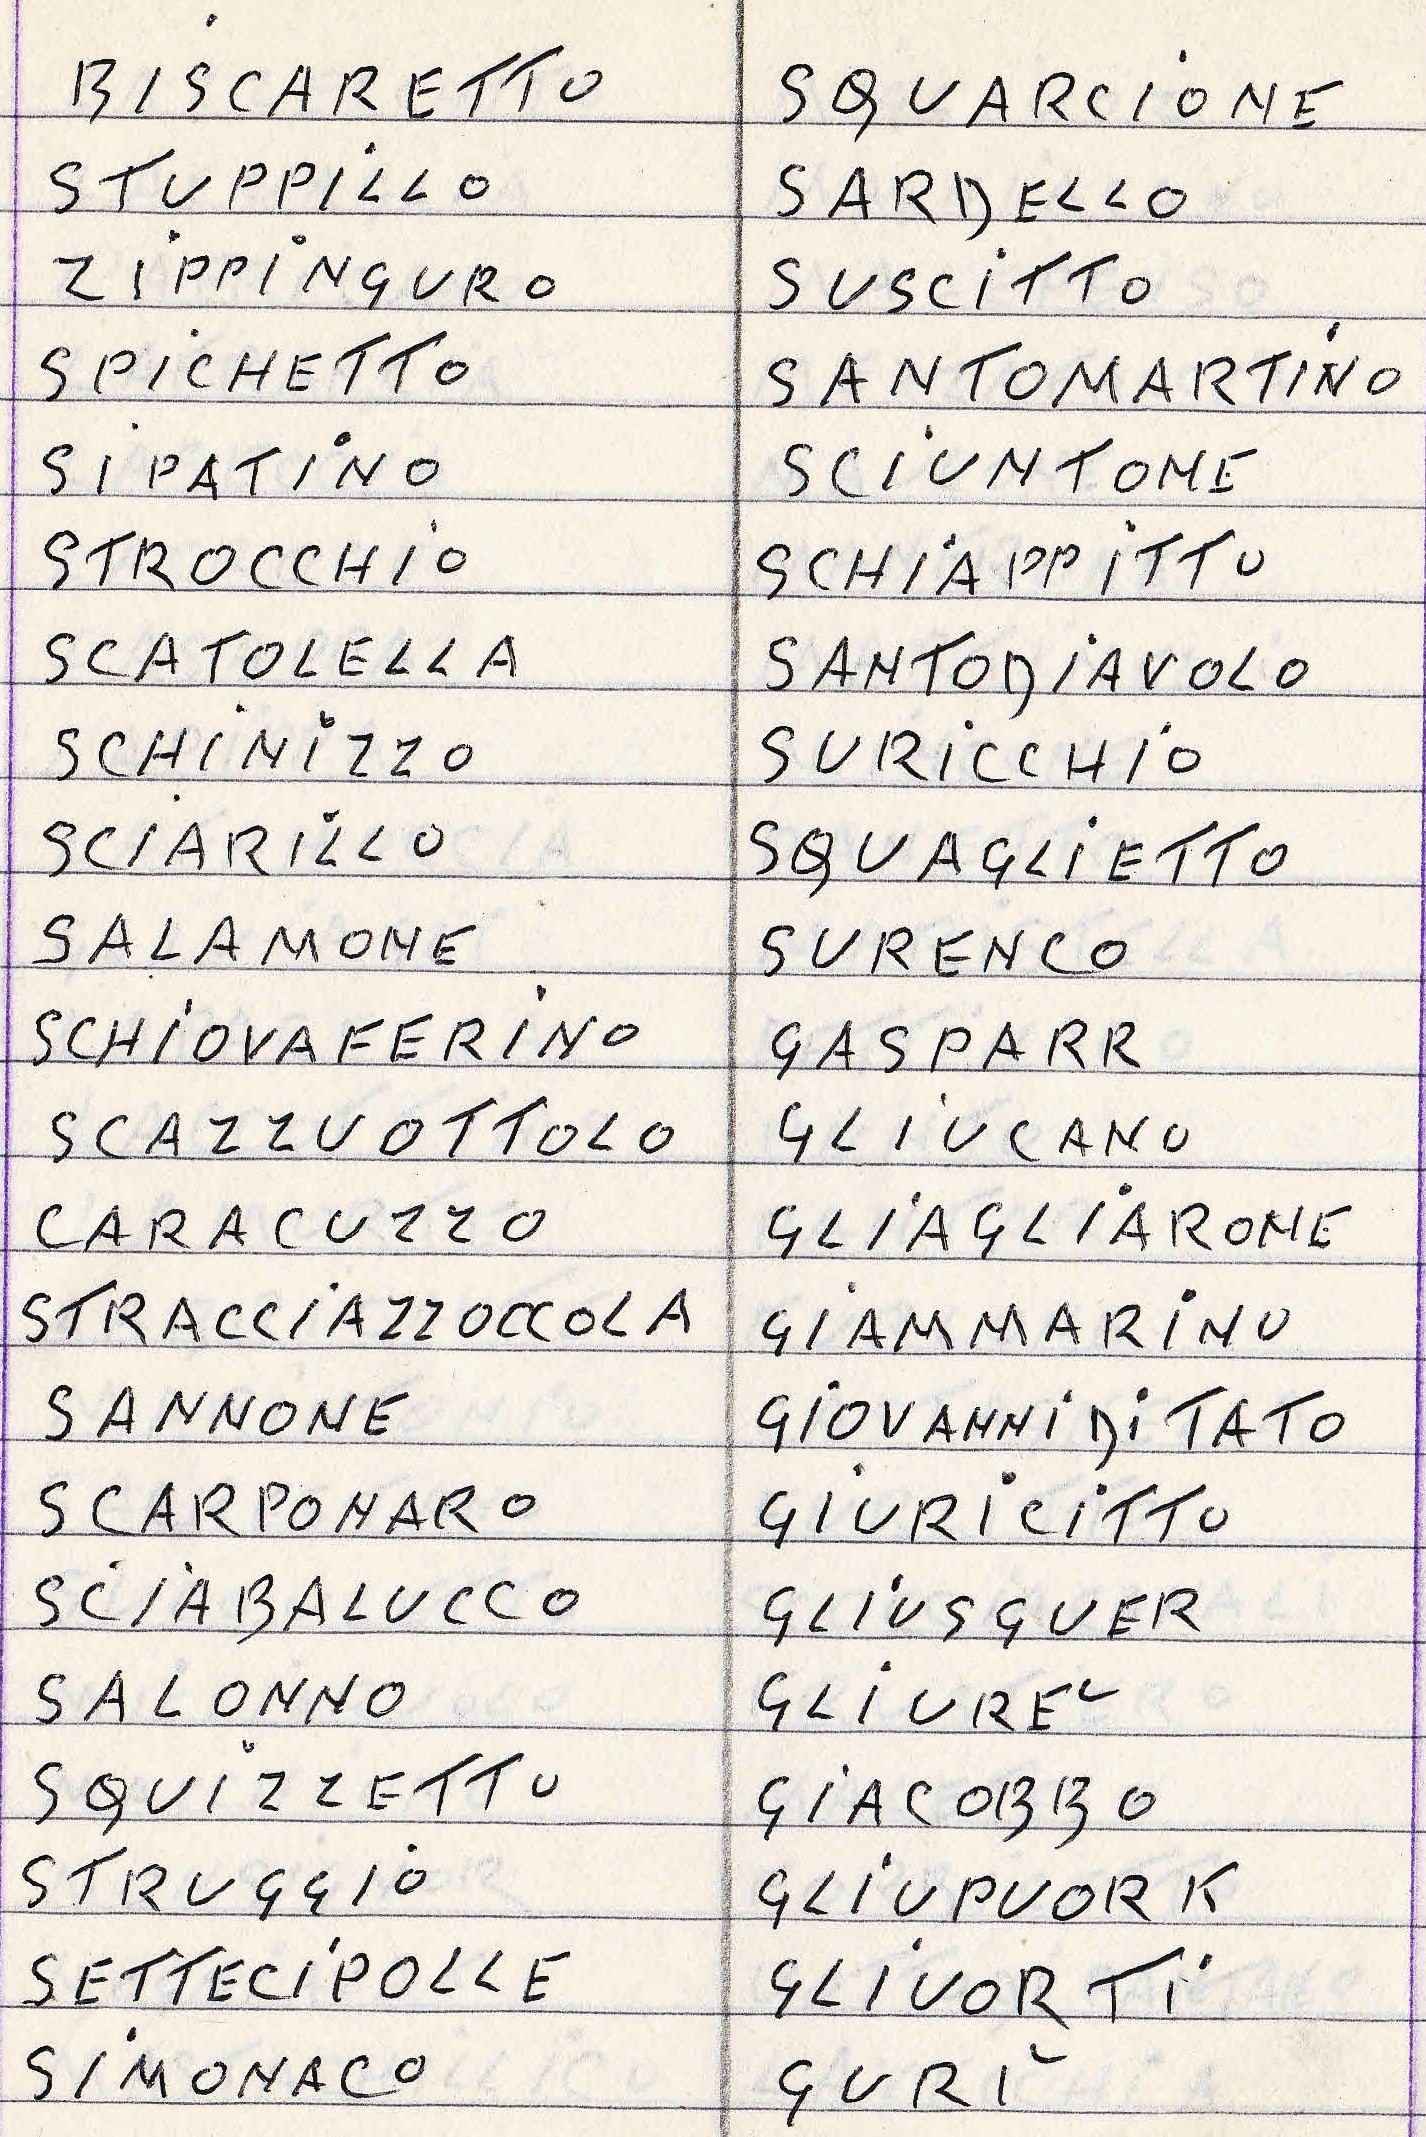 BISCARETTO
STUPPILLO
ZIPPINGURO
SPICHETTO
SIPATINO
STROCCHIO
SCATOLELLA
SCHINIZZO
SCIARILLO
SALAMONE
SCHIOVAFERINO
SCAZZUOTTOLO
CARACUZZO
STRACCIAZZOCCOLA
SANNONE
SCARPONARO
SCIABALUCCO
SALONNO
SQUIZZETTO
STRUGGIO
SETTECIPOLLE
SIMONACO
SQUARCIONE
SARDELLO
SUSCITTO
SANTOMARTINO
SCIUNTONE
SCHIAPPITTO
SANTODIAVOLO
SURICCHIO
SQUAGLIETTO
SURENCO
GASPARR
GLIUCANO
GLIAGLIARONE
GIAMMARINO
GIOVANNI DI TATO
GIURICITTO
GLIUSGUER
GLIURE'
GIACOBBO
GLIUPUORK
GLIUORTI
GURI'